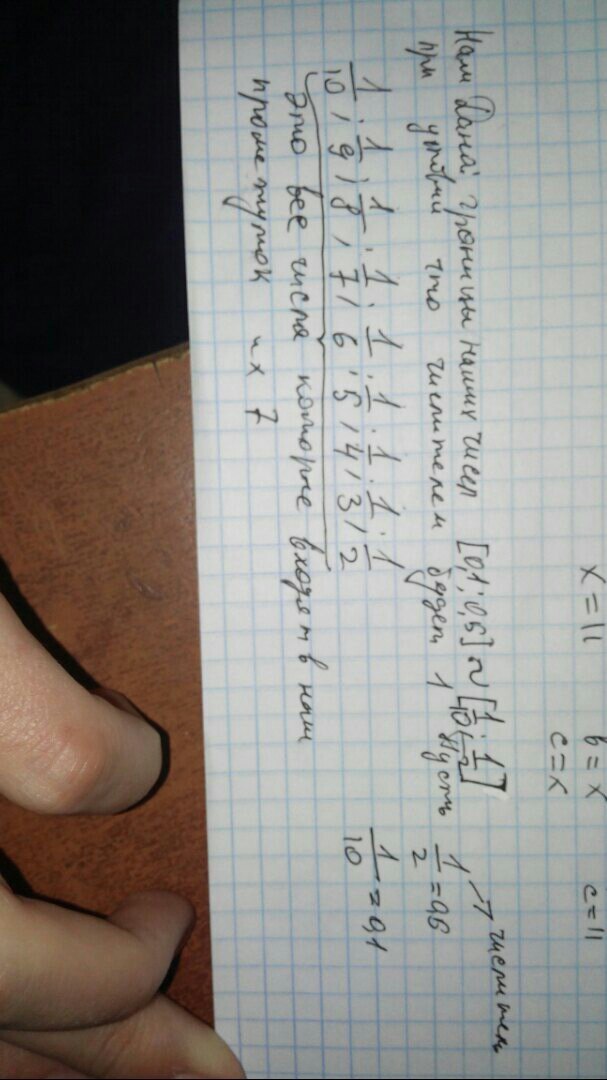 x = 11 b = x c = 11
c = x
Нам Дана границы наших чисел [0,1; 0,5] ~ [1/10; 1/2] → числитель
при условии что числителем будет 1 пусть 1/2 = 0,5
1/10; 1/9; 1/8; 1/7; 1/6; 1/5; 1/4; 1/3; 1/2 1/10 = 0,1
это все числа которые входят в наш
промежуток их 7